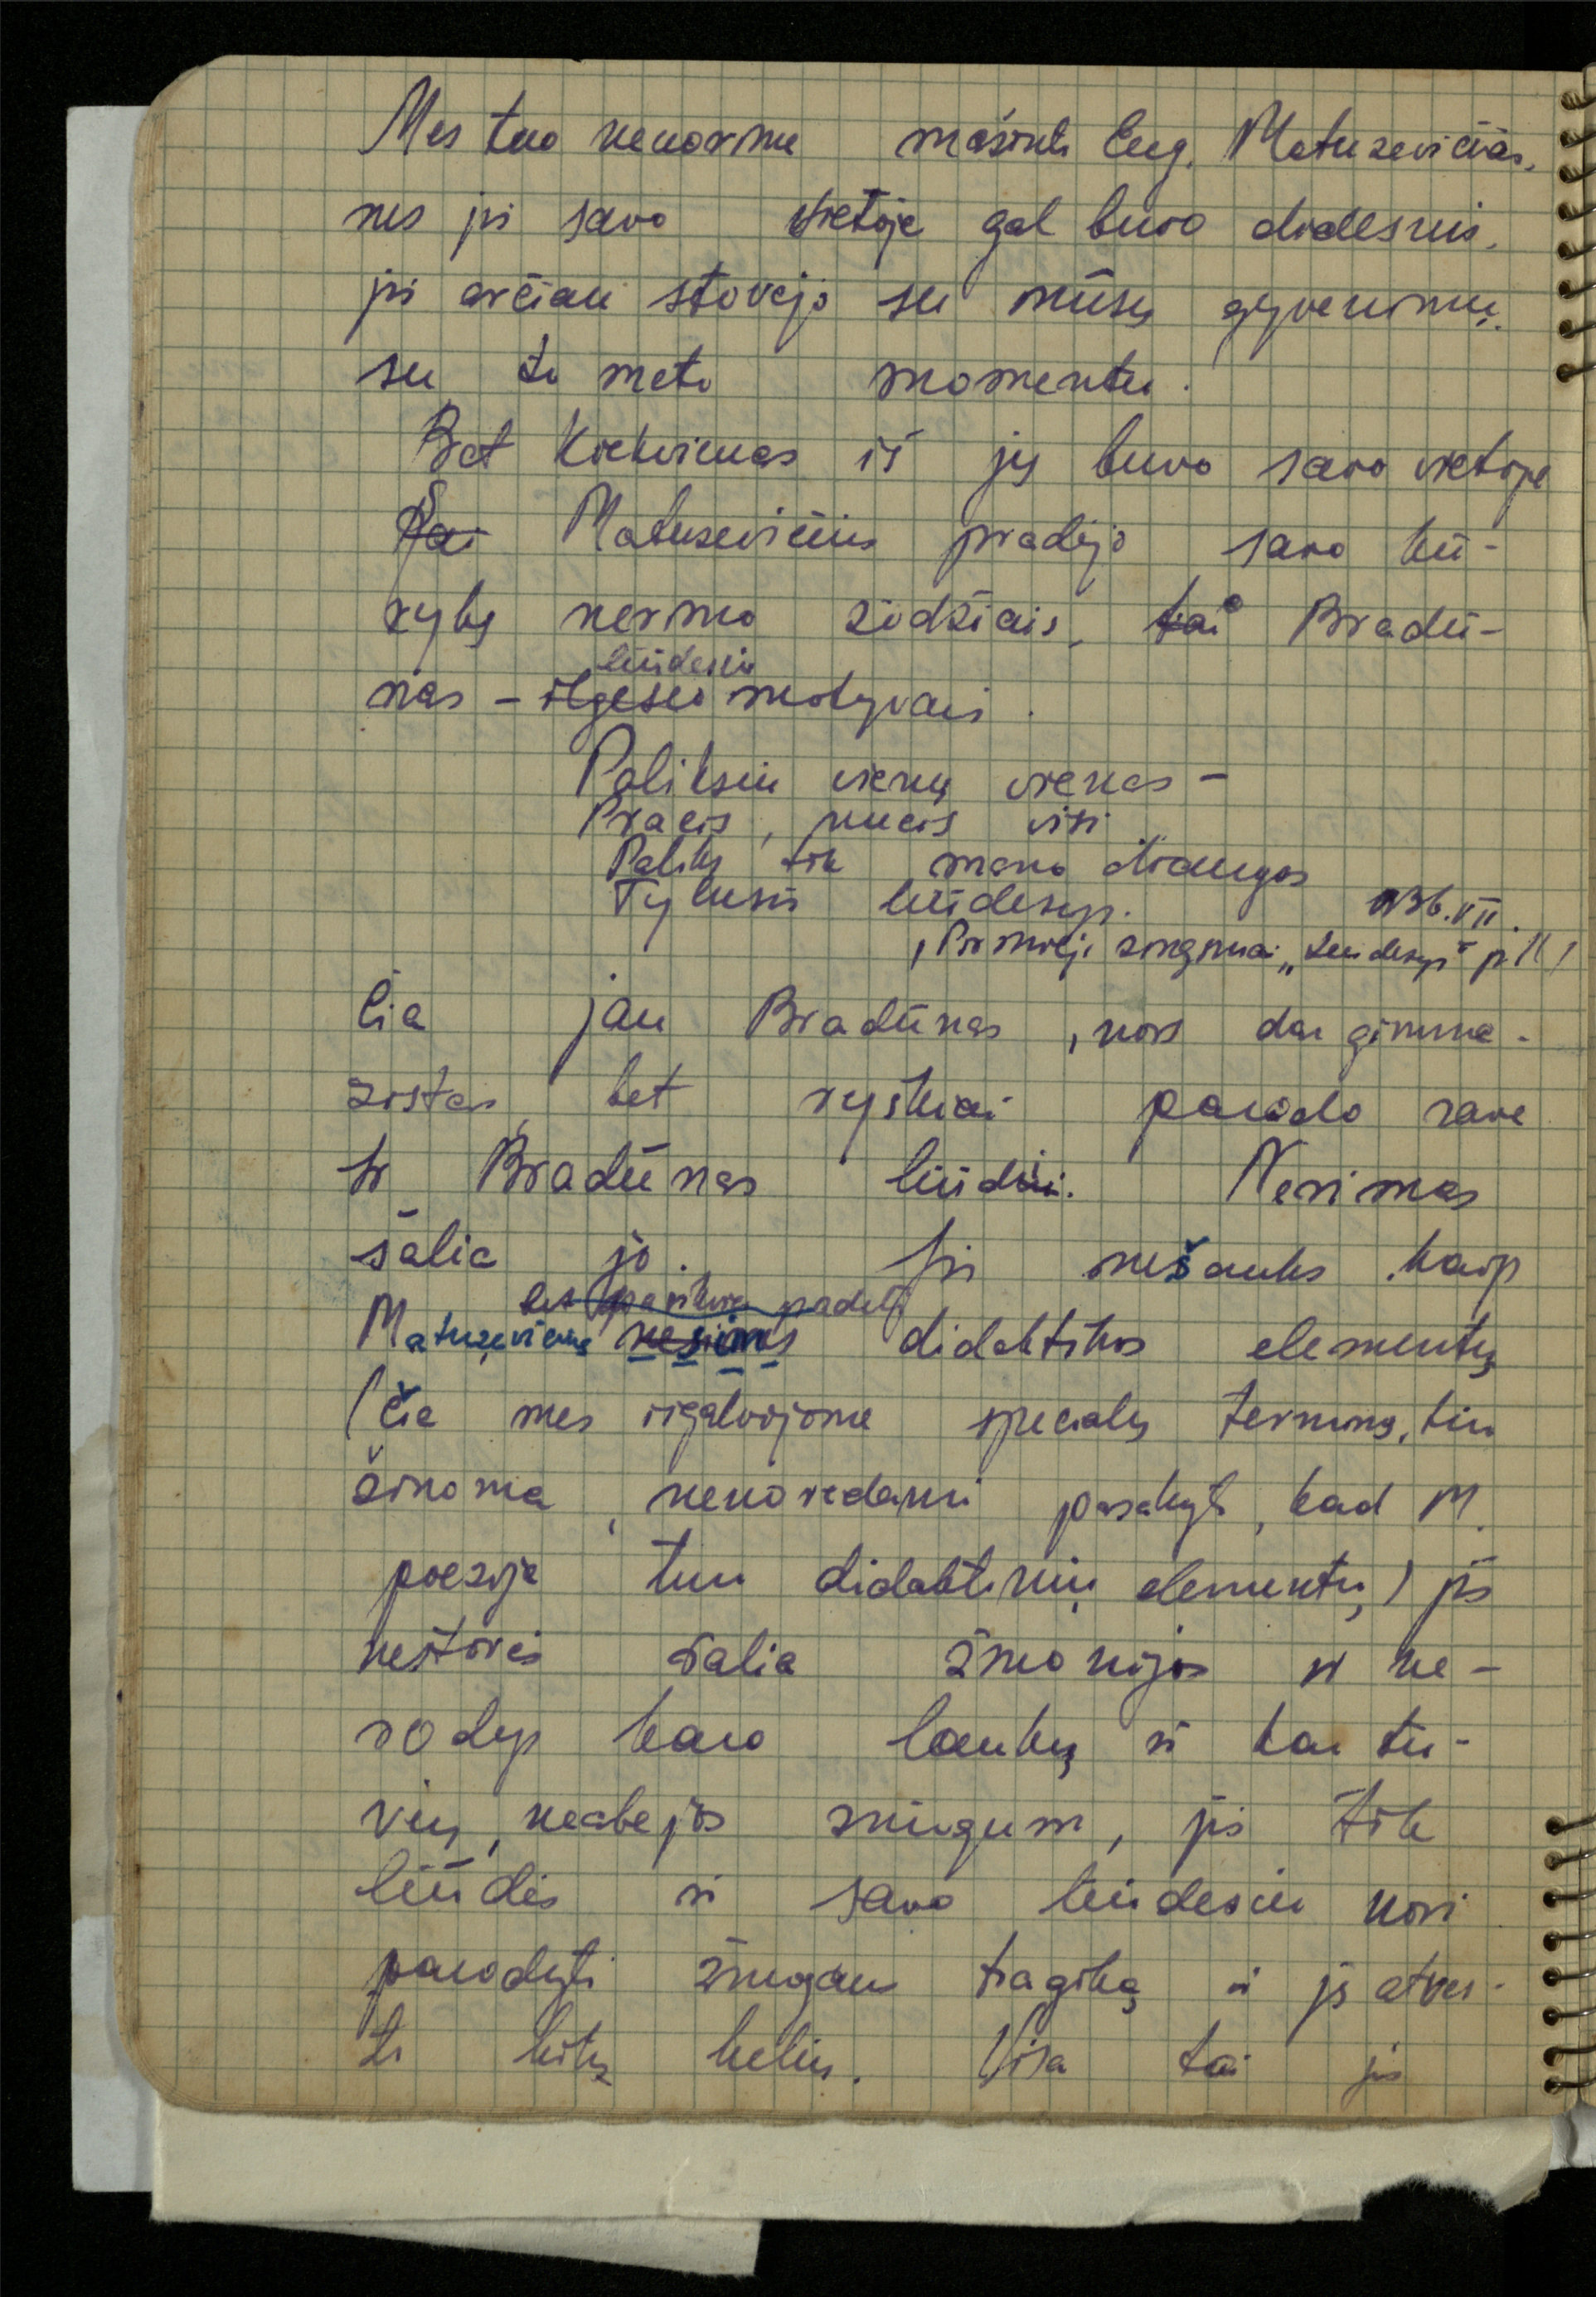 Mes tuo nenorime mažinti Eug. Matuzevičiaus,
nes jis savo vietoje gal buvo didesnis,
jis arčiau stovėjo su mūsų gyvenimu,
su to meto momentu.
Bet kiekvienas iš jų buvo savo vietoje
Matuzevičius pradėjo savo kū-
rybą nerimo žodžiais, o Bradū-
liūdesio
nas – ilgesio motyvais.
Paliksiu vieną vienas –
Praeis, nueis visi
Paliks tik mano draugas
Tylusis liūdesys. 1936.VII.
(Pirmieji žingsniai „Liūdesys“ p. 11)
Čia jau Bradūnas, nors dar gimna-
zistas, bet ryškiai parodo save
Ir Bradūnas liūdi. Nerimas
šalia jo. Jis nešauks kaip
bet pasitikės
Matuzevičius nesiims didaktikos elementų
(čia mes išgalvojome specialų terminą, tuo
žinoma, nenorėdami pasakyt, kad M.
poezija turi didaktinių elementų,) jis
nestovės šalia žmonijos ir ne-
rodys karo laukų ir kar tu-
vių, neabejos žmogum, jis tik
liūdės ir savo liūdesiu nori
parodyti žmogaus tragiką ir jį atves-
ti kitu keliu. Visa tai jis